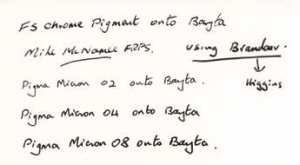 FS Chrome Pigment onto Bayta
Mike McNamee FRPS. using Brandauer.
Higgins
Pigma Micron 02 onto Bayta.
Pigma Micron 04 onto Bayta
Pigma Micron 08 onto Bayta.